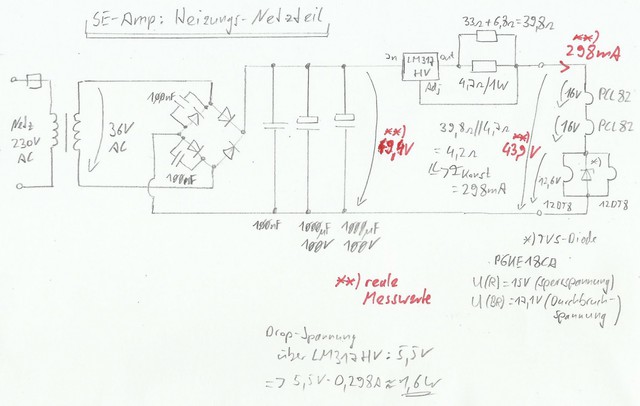 SE-Amp: Heizungs-Netzteil
33Ω+6,8Ω=39,8Ω
**)
298mA
In
LM317
HV
out
Adj
4,7Ω/1W
100nF
16V
PCL82
Netz
230V
AC
36V
AC
**)
49,4V
39,8Ω//4,7Ω
= 4,2Ω
Konst
= 298mA
**)
43,9V
16V
PCL82
100nF
12,6V
*)
12DT8
12DT8
100nF
1000µF
100V
1000µF
100V
*) TVS-Diode
P6KE18CA
U(R)=15V (Sperrspannung)
U(BR)=17,1V (Durchbruch-
spannung)
**) reale
Messwerte
Drop-Spannung
über LM317HV: 5,5V
=> 5,5V·0,298A≈1,6W